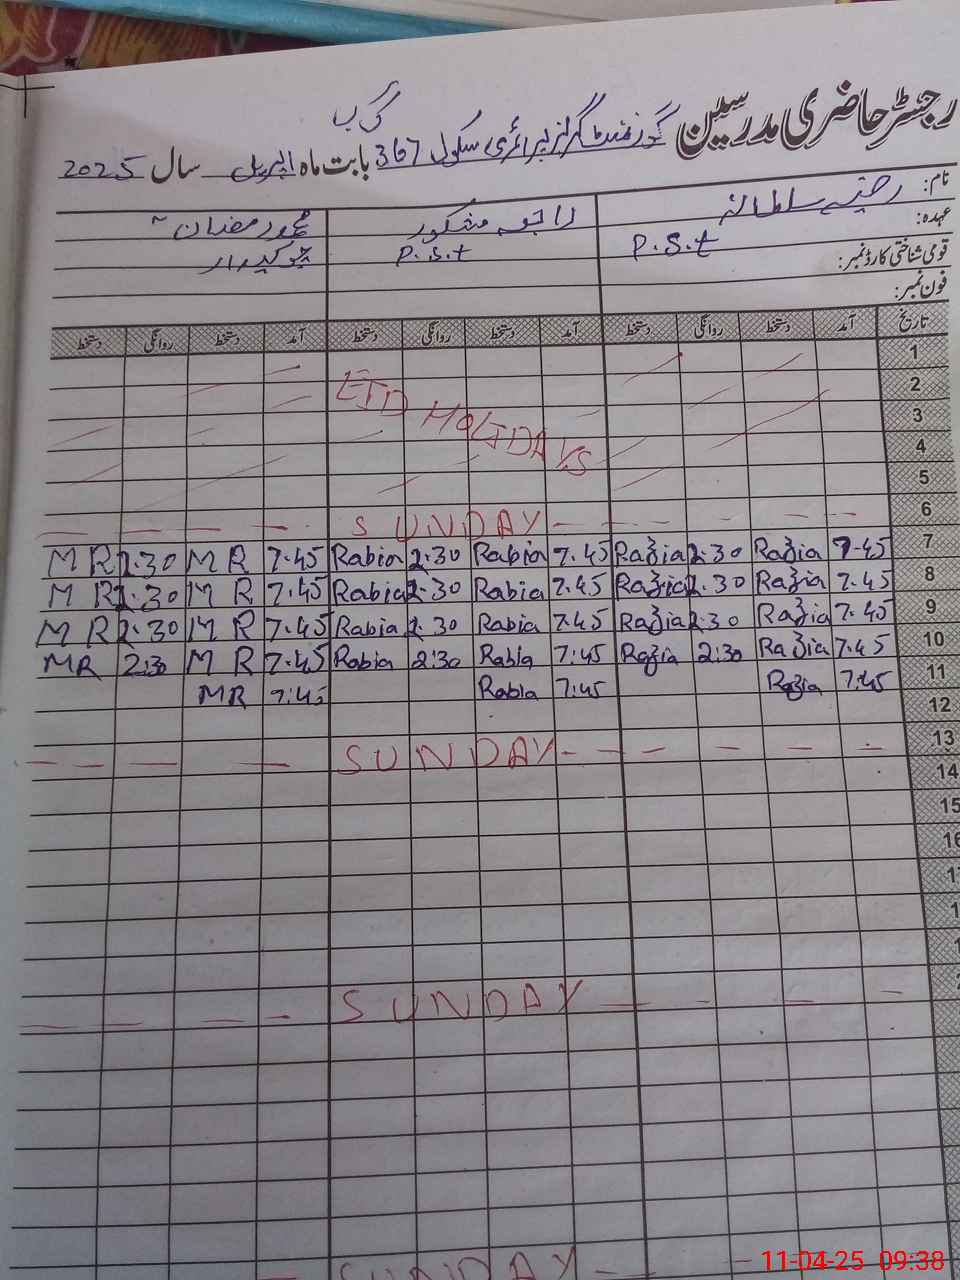 رجسٹر حاضری مدرسین گورنمنٹ گرلز پرائمری سکول 367 گ ب بابت ماہ اپریل سال 2025
نام: رضیہ سلطانہ رابعہ مشکور محمد رمضان
عہدہ: P.S.t P.S.t چوکیدار
قومی شناختی کارڈ نمبر:
فون نمبر:
تاریخ آمد دستخط روانگی دستخط آمد دستخط روانگی دستخط آمد دستخط روانگی دستخط
1
2
3
EID HOLIDAYS
4
5
6 SUNDAY
7 7.45 Razia 2.30 Razia 7.45 Rabia 2.30 Rabia 7.45 M R 2.30 M R
8 7.45 Razia 2.30 Razia 7.45 Rabia 2.30 Rabia 7.45 M R 2.30 M R
9 7.45 Razia 2.30 Razia 7.45 Rabia 2.30 Rabia 7.45 M R 2.30 M R
10 7.45 Razia 2:30 Razia 7:45 Rabia 2:30 Rabia 7:45 M R 2:30 MR
11 7:45 Razia 7:45 Rabia 7:45 MR
12
13 SUNDAY
14
15
16
SUNDAY
SUNDAY
11-04-25 09:38